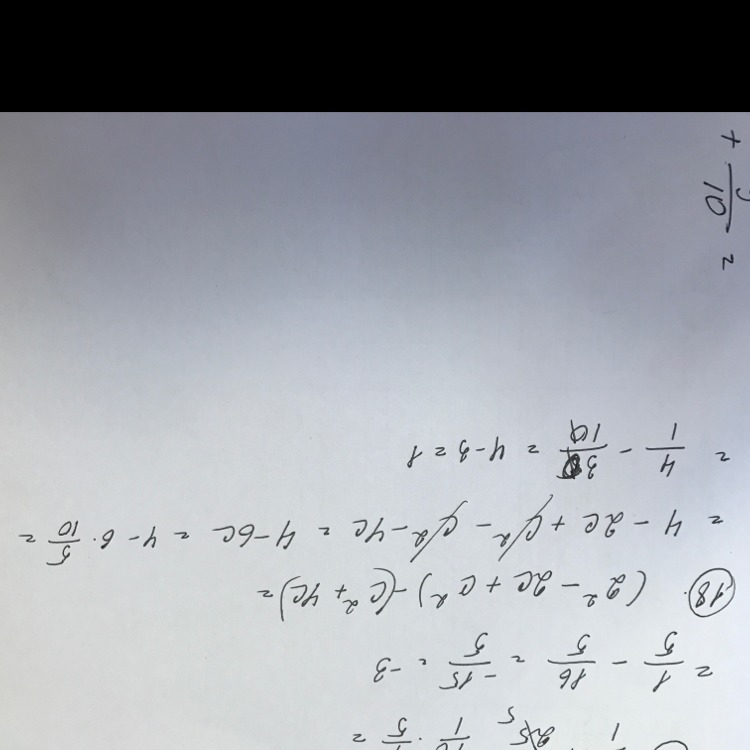 = 1/5 - 16/5 = -15/5 = -3
(18). (2² - 2c + c²) - (c² + 4c) =
= 4 - 2c + c² - c² - 4c = 4 - 6c = 4 - 6 · 5/10 =
= 4/1 - 30/10 = 4 - 3 = 1
+ /10 =